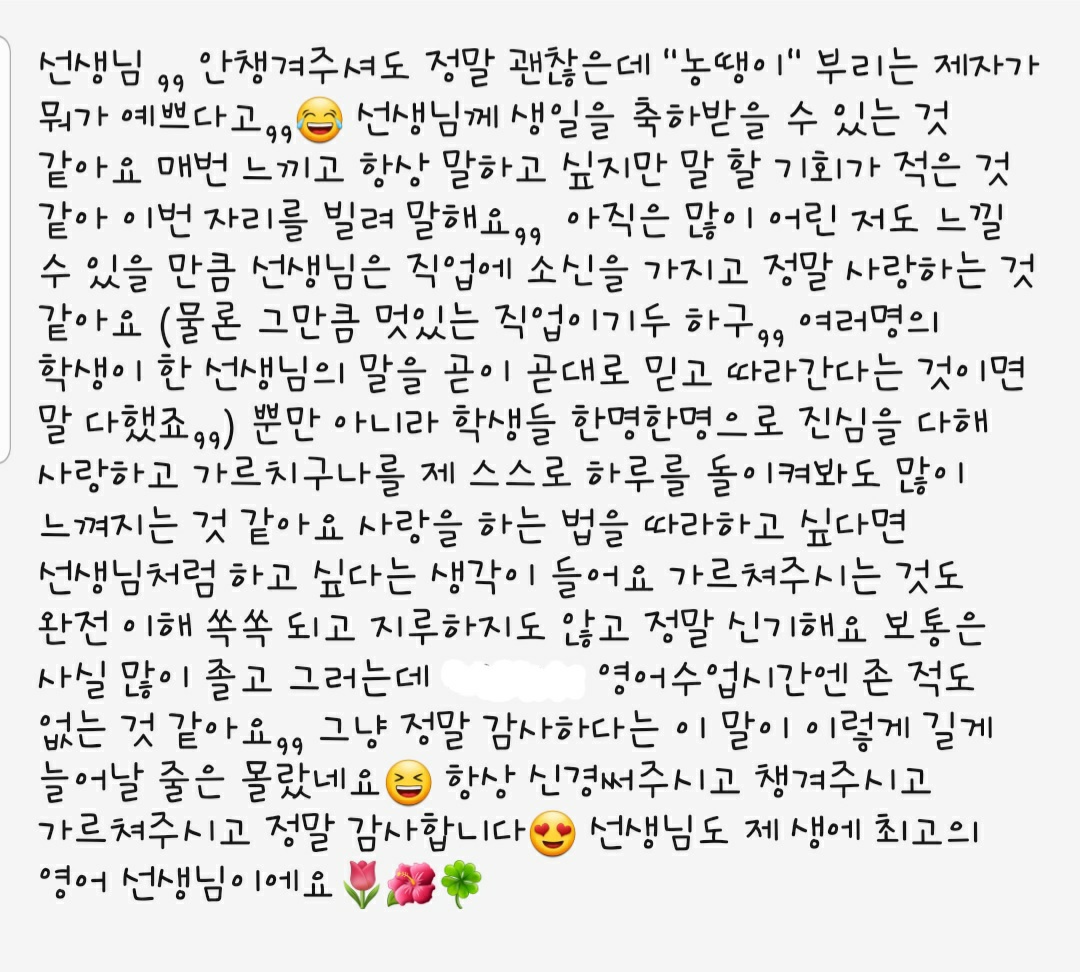 선생님 ,, 안챙겨주셔도 정말 괜찮은데 "농땡이" 부리는 제자가
뭐가 예쁘다고,,😂 선생님께 생일을 축하받을 수 있는 것
같아요 매번 느끼고 항상 말하고 싶지만 말 할 기회가 적은 것
같아 이번 자리를 빌려 말해요,, 아직은 많이 어린 저도 느낄
수 있을 만큼 선생님은 직업에 소신을 가지고 정말 사랑하는 것
같아요 (물론 그만큼 멋있는 직업이기두 하구,, 여러명의
학생이 한 선생님의 말을 곧이 곧대로 믿고 따라간다는 것이면
말 다했죠,,) 뿐만 아니라 학생들 한명한명으로 진심을 다해
사랑하고 가르치구나를 제 스스로 하루를 돌이켜봐도 많이
느껴지는 것 같아요 사랑을 하는 법을 따라하고 싶다면
선생님처럼 하고 싶다는 생각이 들어요 가르쳐주시는 것도
완전 이해 쏙쏙 되고 지루하지도 않고 정말 신기해요 보통은
사실 많이 졸고 그러는데 영어수업시간엔 존 적도
없는 것 같아요,, 그냥 정말 감사하다는 이 말이 이렇게 길게
늘어날 줄은 몰랐네요😆 항상 신경써주시고 챙겨주시고
가르쳐주시고 정말 감사합니다😍 선생님도 제 생에 최고의
영어 선생님이에요🌷🌺🍀